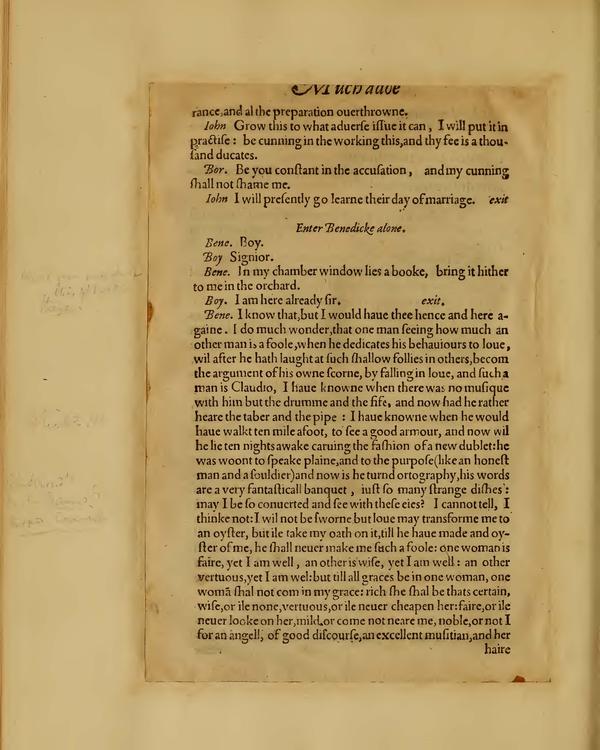 Much adoe
rance, and al the preparation ouerthrowne.
Iohn Grow this to what aduerſe iſſue it can, I will put it in
practiſe: be cunning in the working this, and thy fee is a thou-
ſand ducates.
Bor. Be you conſtant in the accuſation, and my cunning
ſhall not ſhame me.
Iohn I will preſently go learne their day of marriage. exit
Enter Benedicke alone.
Bene. Boy.
Boy Signior.
Bene. In my chamber window lies a booke, bring it hither
to me in the orchard.
Boy. I am here already ſir. exit.
Bene. I know that, but I would haue thee hence and here a-
gaine. I do much wonder, that one man ſeeing how much an
other man is a foole, when he dedicates his behauiours to loue,
wil after he hath laught at ſuch ſhallow follies in others, becom
the argument of his owne ſcorne, by falling in loue, and ſuch a
man is Claudio, I haue knowne when there was no muſique
with him but the drumme and the fife, and now had he rather
heare the taber and the pipe : I haue knowne when he would
haue walkt ten mile afoot, to ſee a good armour, and now wil
he lie ten nights awake caruing the faſhion of a new dublet: he
was woont to ſpeake plaine, and to the purpoſe (like an honeſt
man and a ſouldier) and now is he turnd ortography, his words
are a very fantaſticall banquet, iuſt ſo many ſtrange diſhes:
may I be ſo conuerted and ſee with theſe eies? I cannot tell, I
thinke not: I wil not be ſworne but loue may transforme me to
an oyſter, but ile take my oath on it, till he haue made and oy-
ſter of me, he ſhall neuer make me ſuch a foole: one woman is
faire, yet I am well, an other is wiſe, yet I am well: an other
vertuous, yet I am wel: but till all graces be in one woman, one
womā ſhal not com in my grace: rich ſhe ſhal be thats certain,
wiſe, or ile none, vertuous, or ile neuer cheapen her: faire, or ile
neuer looke on her, mild, or come not neare me, noble, or not I
for an angell, of good diſcourſe, an excellent muſitian, and her
haire